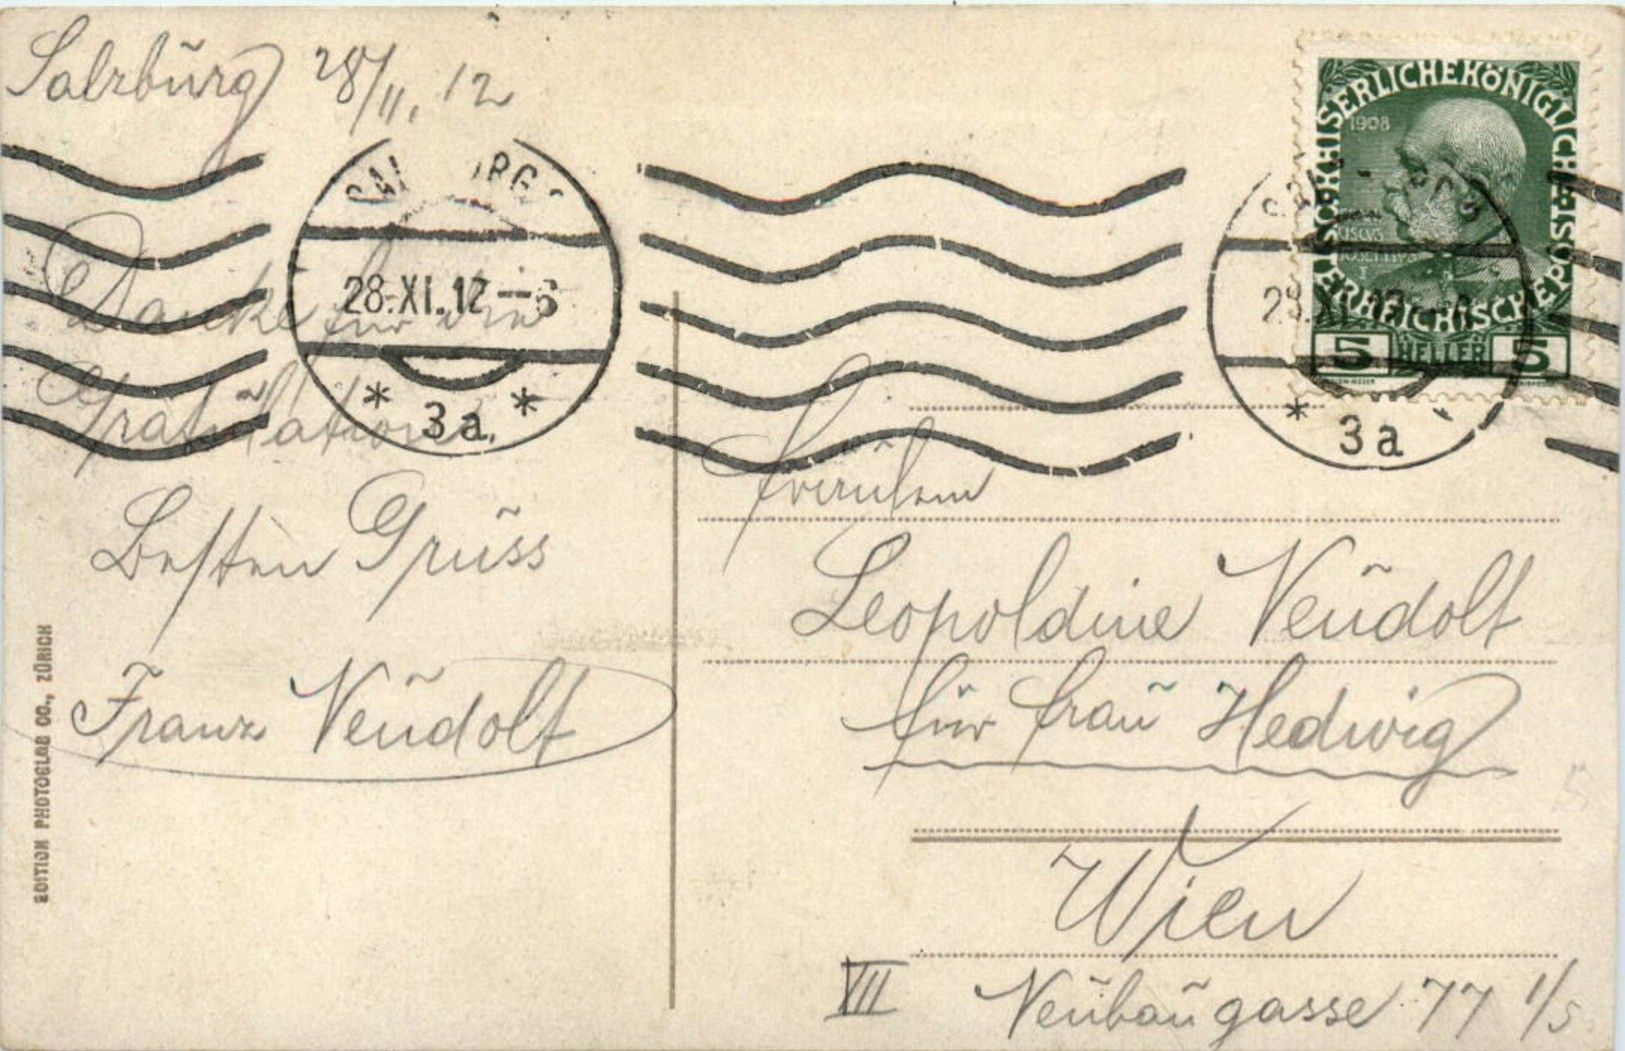 Salzburg 28/11. 12
SALZBURG 2
28.XI.12-6
* 3a *
Danke für die
Gratulation
Besten Gruss
Franz Neudolt
EDITION PHOTOGLOB CO., ZÜRICH
KAISERLICHEKÖNIGLICHE
ÖSTERREICHISCHEPOST
1908
5 HELLER 5
28.XI.12-6
* 3a
Fräulein
Leopoldine Neudolt
für Frau Hedwig
Wien
VII Neubaugasse 77 1/5